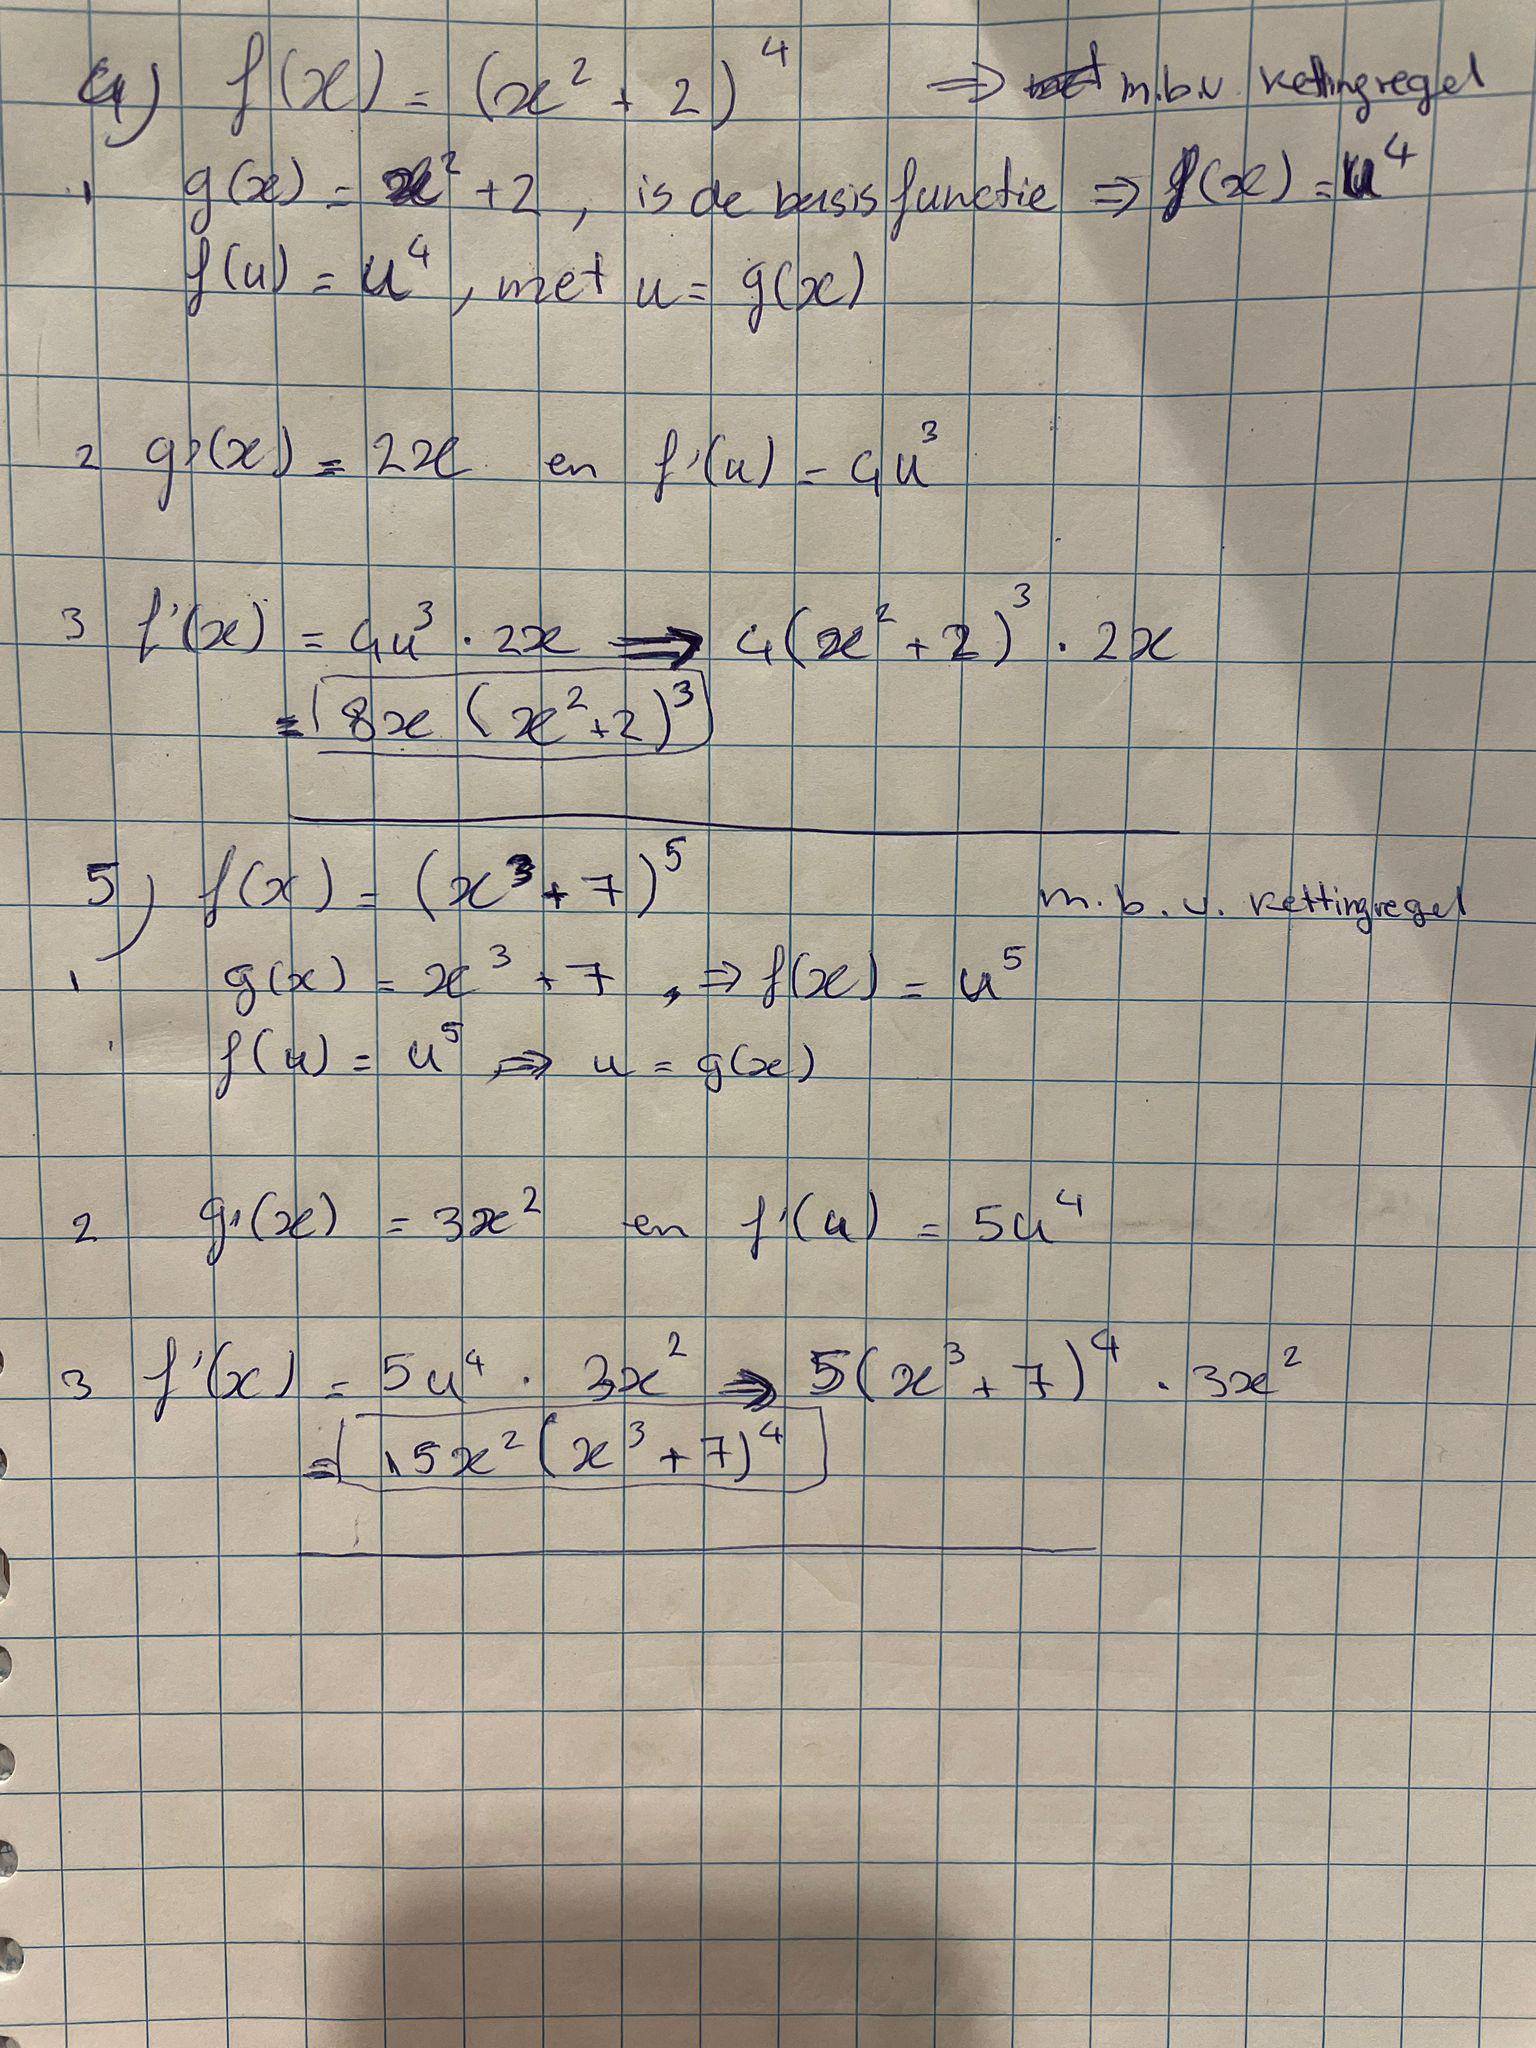 4) f(x) = (x² + 2)⁴ ⇒ m.b.v. kettingregel
1 g(x) = x² + 2, is de basisfunctie ⇒ f(x) = u⁴
f(u) = u⁴, met u = g(x)
2 g'(x) = 2x en f'(u) = 4u³
3 f'(x) = 4u³ · 2x ⇒ 4(x² + 2)³ · 2x
= 8x (x² + 2)³
5) f(x) = (x³ + 7)⁵ m.b.v. kettingregel
1 g(x) = x³ + 7, ⇒ f(x) = u⁵
f(u) = u⁵ ⇒ u = g(x)
2 g'(x) = 3x² en f'(u) = 5u⁴
3 f'(x) = 5u⁴ · 3x² ⇒ 5(x³ + 7)⁴ · 3x²
= 15x² (x³ + 7)⁴